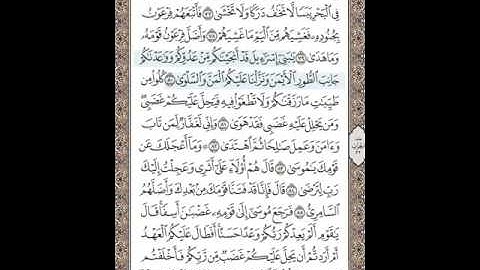 فِى ٱلْبَحْرِ يَبَسًا لَّا تَخَٰفُ دَرَكًا وَلَا تَخْشَىٰ ٧٧ فَأَتْبَعَهُمْ فِرْعَوْنُ
بِجُنُودِهِۦ فَغَشِيَهُم مِّنَ ٱلْيَمِّ مَا غَشِيَهُمْ ٧٨ وَأَضَلَّ فِرْعَوْنُ قَوْمَهُۥ
وَمَا هَدَىٰ ٧٩ يَٰبَنِىٓ إِسْرَٰٓءِيلَ قَدْ أَنجَيْنَٰكُم مِّنْ عَدُوِّكُمْ وَوَٰعَدْنَٰكُمْ
جَانِبَ ٱلطُّورِ ٱلْأَيْمَنَ وَنَزَّلْنَا عَلَيْكُمُ ٱلْمَنَّ وَٱلسَّلْوَىٰ ٨٠ كُلُوا۟ مِن
طَيِّبَٰتِ مَا رَزَقْنَٰكُمْ وَلَا تَطْغَوْا۟ فِيهِ فَيَحِلَّ عَلَيْكُمْ غَضَبِى
وَمَن يَحْلِلْ عَلَيْهِ غَضَبِى فَقَدْ هَوَىٰ ٨١ وَإِنِّى لَغَفَّارٌ لِّمَن تَابَ
وَءَامَنَ وَعَمِلَ صَٰلِحًا ثُمَّ ٱهْتَدَىٰ ٨٢ وَمَآ أَعْجَلَكَ عَن
قَوْمِكَ يَٰمُوسَىٰ ٨٣ قَالَ هُمْ أُو۟لَآءِ عَلَىٰٓ أَثَرِى وَعَجِلْتُ إِلَيْكَ
رَبِّ لِتَرْضَىٰ ٨٤ قَالَ فَإِنَّا قَدْ فَتَنَّا قَوْمَكَ مِنۢ بَعْدِكَ وَأَضَلَّهُمُ
ٱلسَّامِرِىُّ ٨٥ فَرَجَعَ مُوسَىٰٓ إِلَىٰ قَوْمِهِۦ غَضْبَٰنَ أَسِفًا قَالَ
يَٰقَوْمِ أَلَمْ يَعِدْكُمْ رَبُّكُمْ وَعْدًا حَسَنًا أَفَطَالَ عَلَيْكُمُ ٱلْعَهْدُ
أَمْ أَرَدتُّمْ أَن يَحِلَّ عَلَيْكُمْ غَضَبٌ مِّن رَّبِّكُمْ فَأَخْلَفْتُم